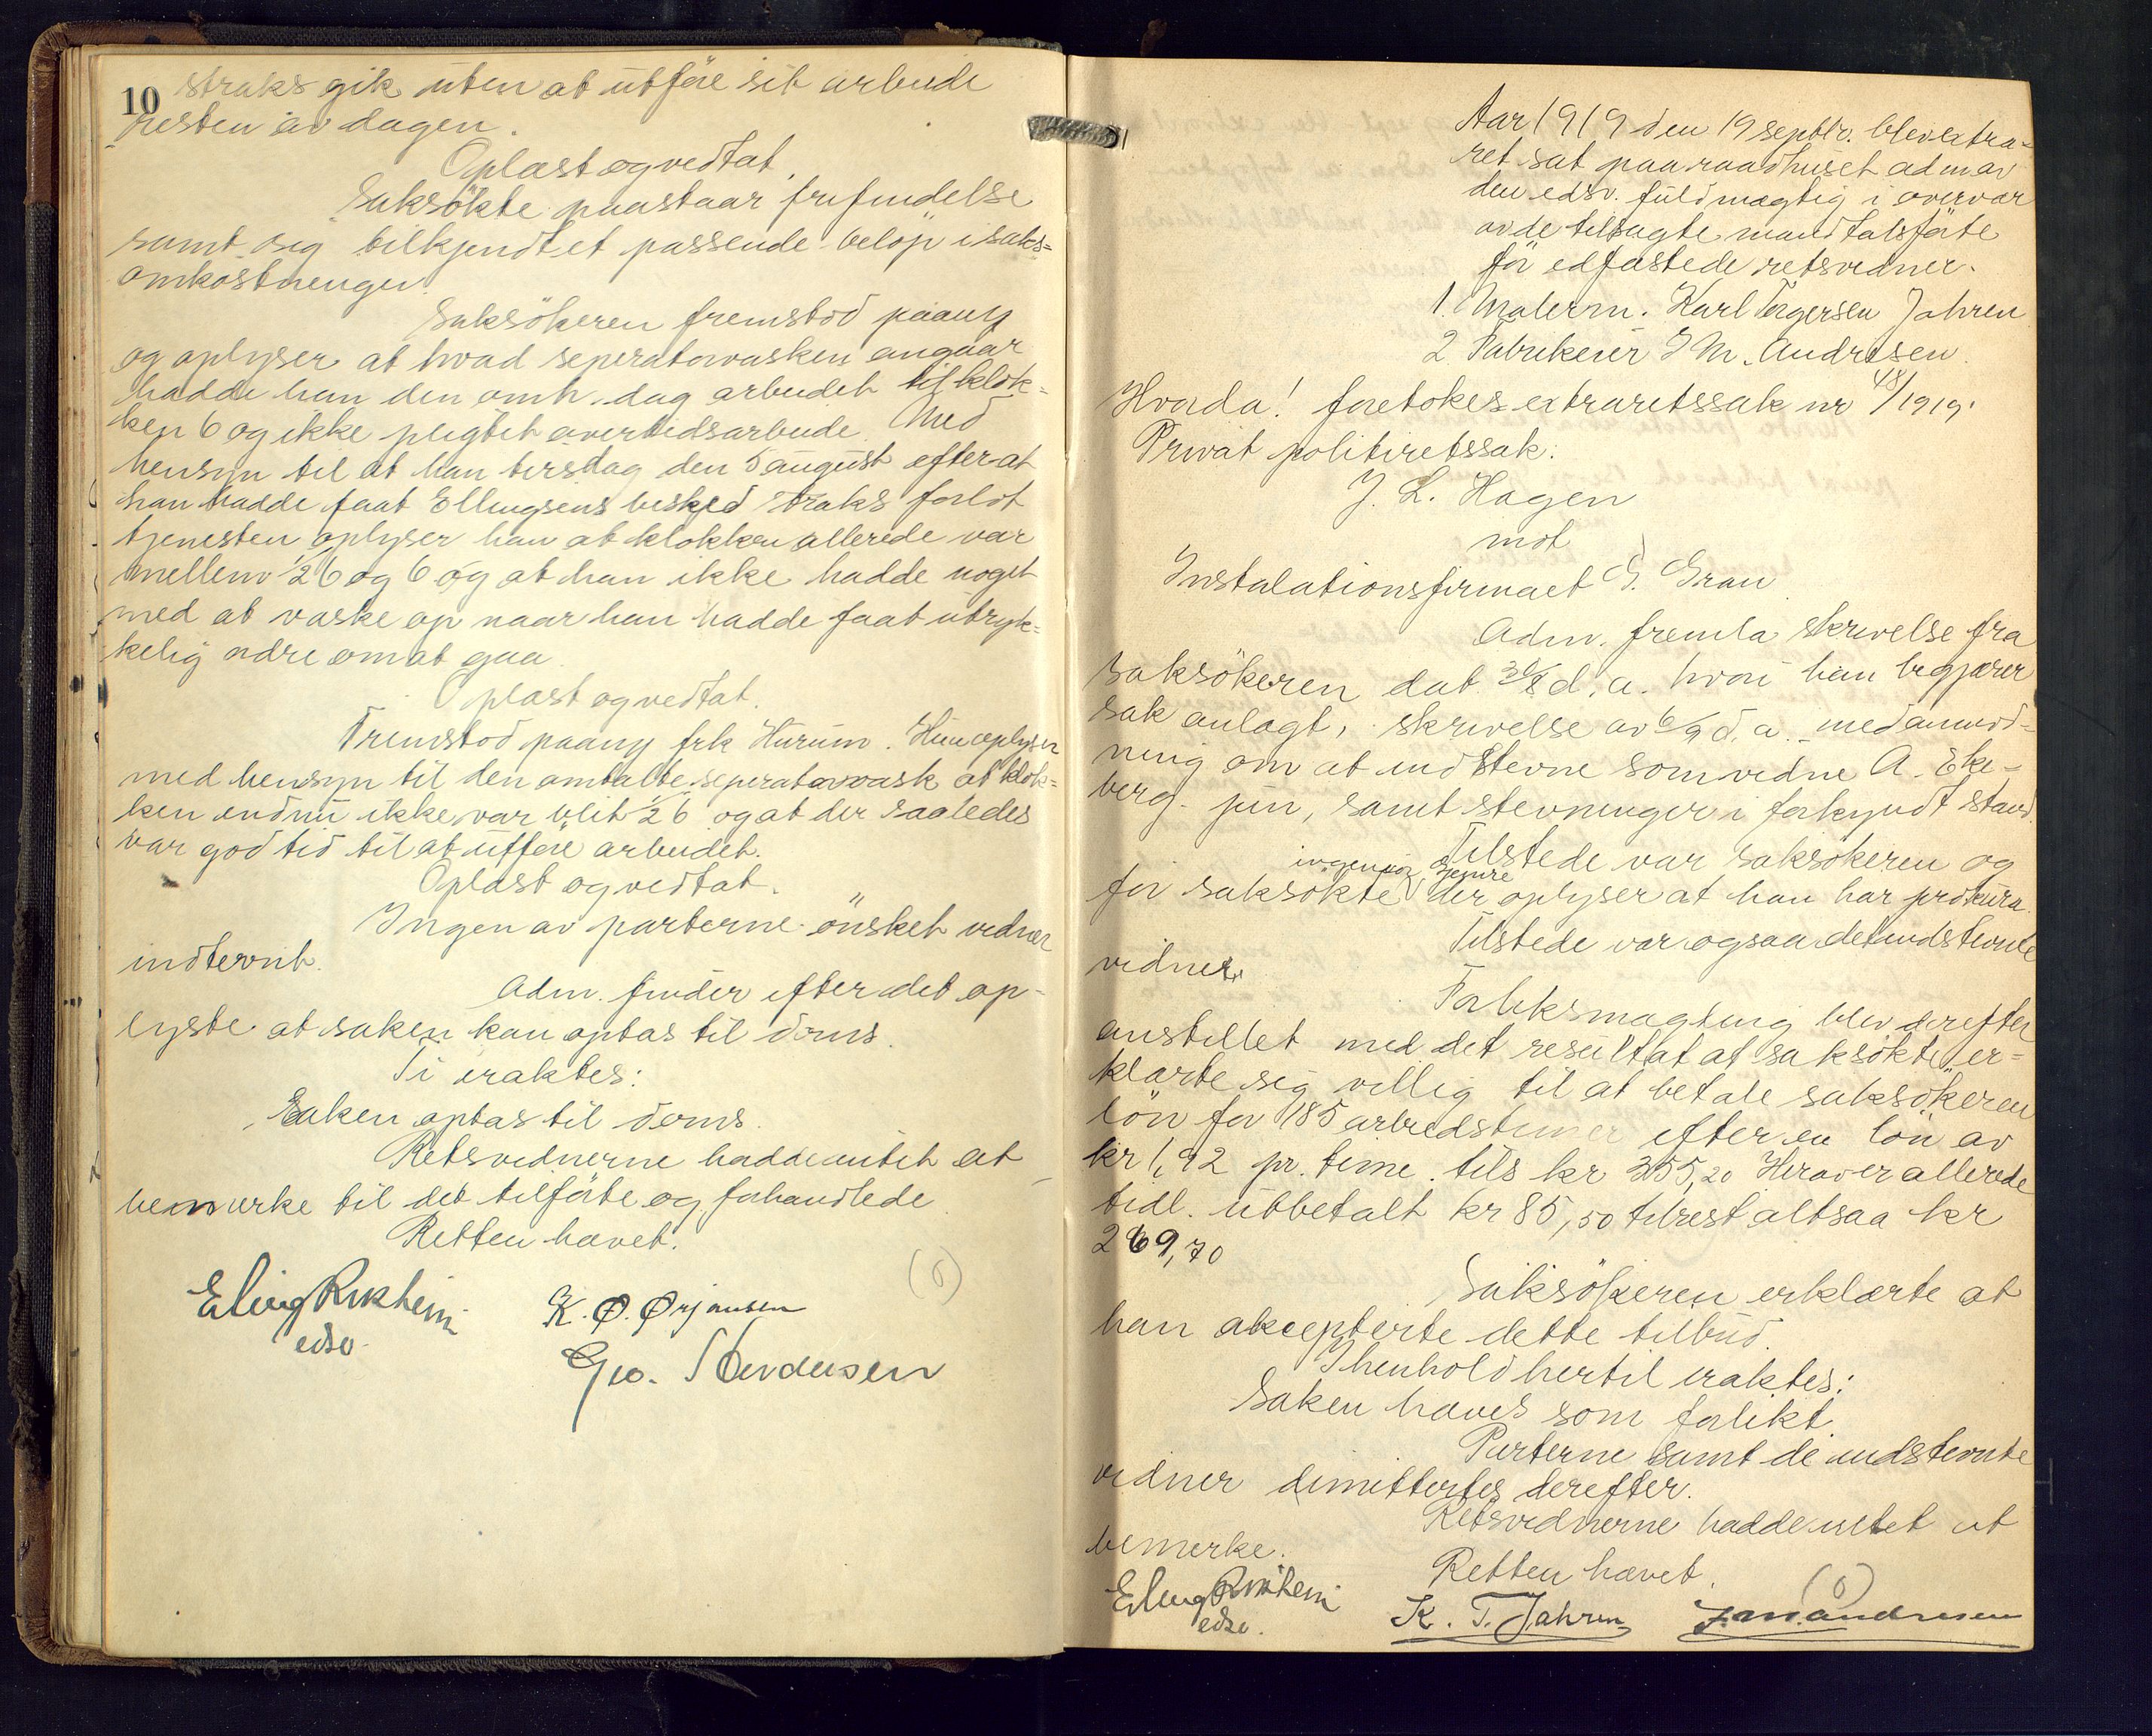 10 straks gik uten at utføre sit arbeide
resten av dagen.
Oplæst og vedtat.
Saksökte paastaar frifindelse
samt sig tilkjendt et passende belöp i saks=
omkostninger.
Saksökeren fremstod paany
og oplyser at hvad seperatorvasken angaar
hadde han den omh. dag arbeidet til klok=
ken 6 og ikke pligtet overtidsarbeide. Med
hensyn til at han tirsdag den 5 august efter at
han hadde faat Ellingsens besked straks forlot
tjenesten oplyser han at klokken allerede var
mellem 1/2 6 og 6 og at han ikke hadde noget
med at vaske op naar han hadde faat utryk=
kelig ordre om at gaa.
Oplæst og vedtat.
Fremstod paany frk Hurum. Hun oplyser
med hensyn til den omtalte seperatorvask at klok=
ken endnu ikke var blit 1/2 6 og at der saaledes
var god tid til at utføre arbeidet.
Oplæst og vedtat.
Ingen av parterne önsket vidner
indtervit.
Adm. finder efter det op-
lyste at saken kan optas til doms.
Ti eraktes:
Saken optas til doms.
Retsvidnerne hadde intet at
bemerke til det tilførte og forhandlede.
Retten hævet.
(0)
Erling Rikheim K. Ø. Ørjansen
edsv.
Geo.
Aar 1919 den 19 septbr. blev extra-
ret sat paa raadhuset adm av
den edsv. fuldmægtig i overvær
av de tilsagte mandtalsførte
før edfæstede retsvidner.
1. Malerm. Karl Torgersen Jahren
2 Fabrikeier J M. Andresen.
Hvorda! foretokes extraretssak nr 48/1919.
Privat politiretssak:
J. L. Hagen
mot
Instalationsfirmaet S. Gran.
Adm. fremla skrivelse fra
saksökeren dat 30/8 d. a. hvori han begjærer
sak anlagt, skrivelse av 6/9 d. a. med anmod-
ning om at indstevne som vidne A. Eke-
berg jun, samt stevninger i forkyndt stand.
Tilstede var saksökeren og
ingeniør
for saksökte der oplyser at han har prokura.
Tilstede var ogsaa det indstevnte
vidner.
Forliksmægling blev derefter
anstillet med det resultat at saksökte er=
klærte sig villig til at betale saksökeren
lön for 185 arbeidstimer efter en lön av
kr 1,92 pr. time. tils kr 355,20 Herav er allerede
tidl. utbetalt kr 85,50 tilrest altsaa kr
269,70
Saksökeren erklærte at
han akcepterte dette tilbud.
I henhold hertil eraktes:
Saken hæves som forlikt.
Parterne samt de indstevnte
vidner dimittertes derefter.
Retsvidnerne hadde intet at
bemerke.
Retten hævet.
(0)
Erling Rikheim K. T. Jahren J. M. Andresen
edsv.